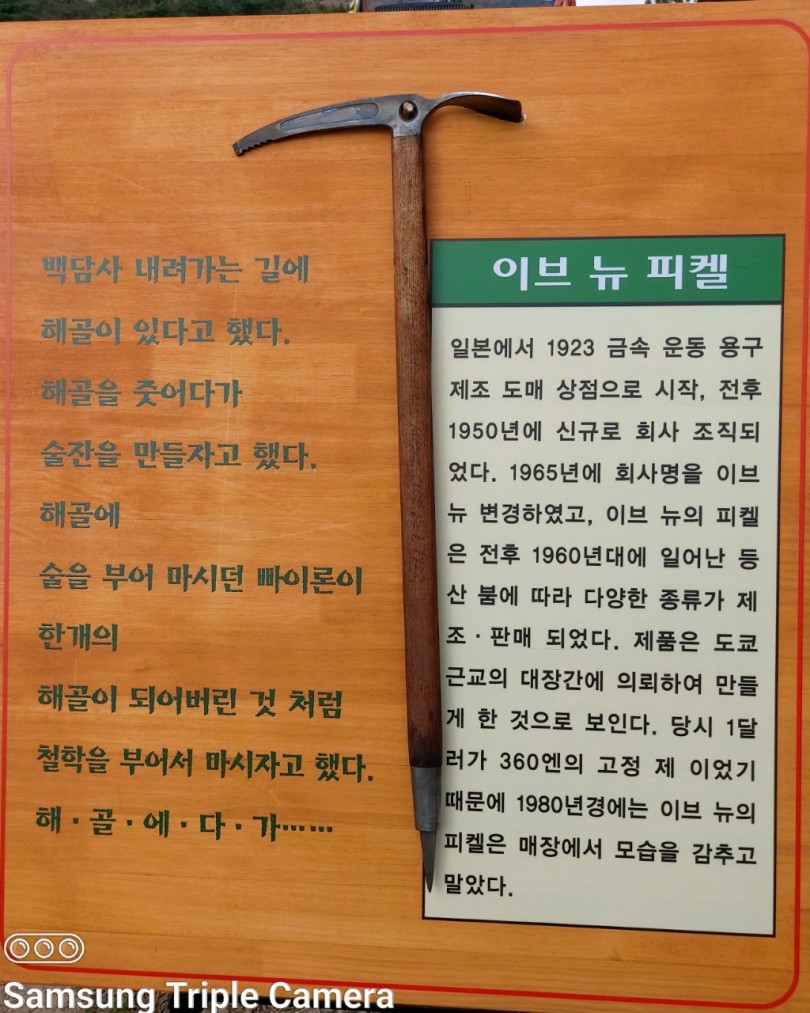 백담사 내려가는 길에
해골이 있다고 했다.
해골을 줏어다가
술잔을 만들자고 했다.
해골에
술을 부어 마시던 빠이론이
한개의
해골이 되어버린 것 처럼
철학을 부어서 마시자고 했다.
해·골·에·다·가……
이브 뉴 피켈
일본에서 1923 금속 운동 용구
제조 도매 상점으로 시작, 전후
1950년에 신규로 회사 조직되
었다. 1965년에 회사명을 이브
뉴 변경하였고, 이브 뉴의 피켈
은 전후 1960년대에 일어난 등
산 붐에 따라 다양한 종류가 제
조·판매 되었다. 제품은 도쿄
근교의 대장간에 의뢰하여 만들
게 한 것으로 보인다. 당시 1달
러가 360엔의 고정 제 이었기
때문에 1980년경에는 이브 뉴의
피켈은 매장에서 모습을 감추고
말았다.
Samsung Triple Camera